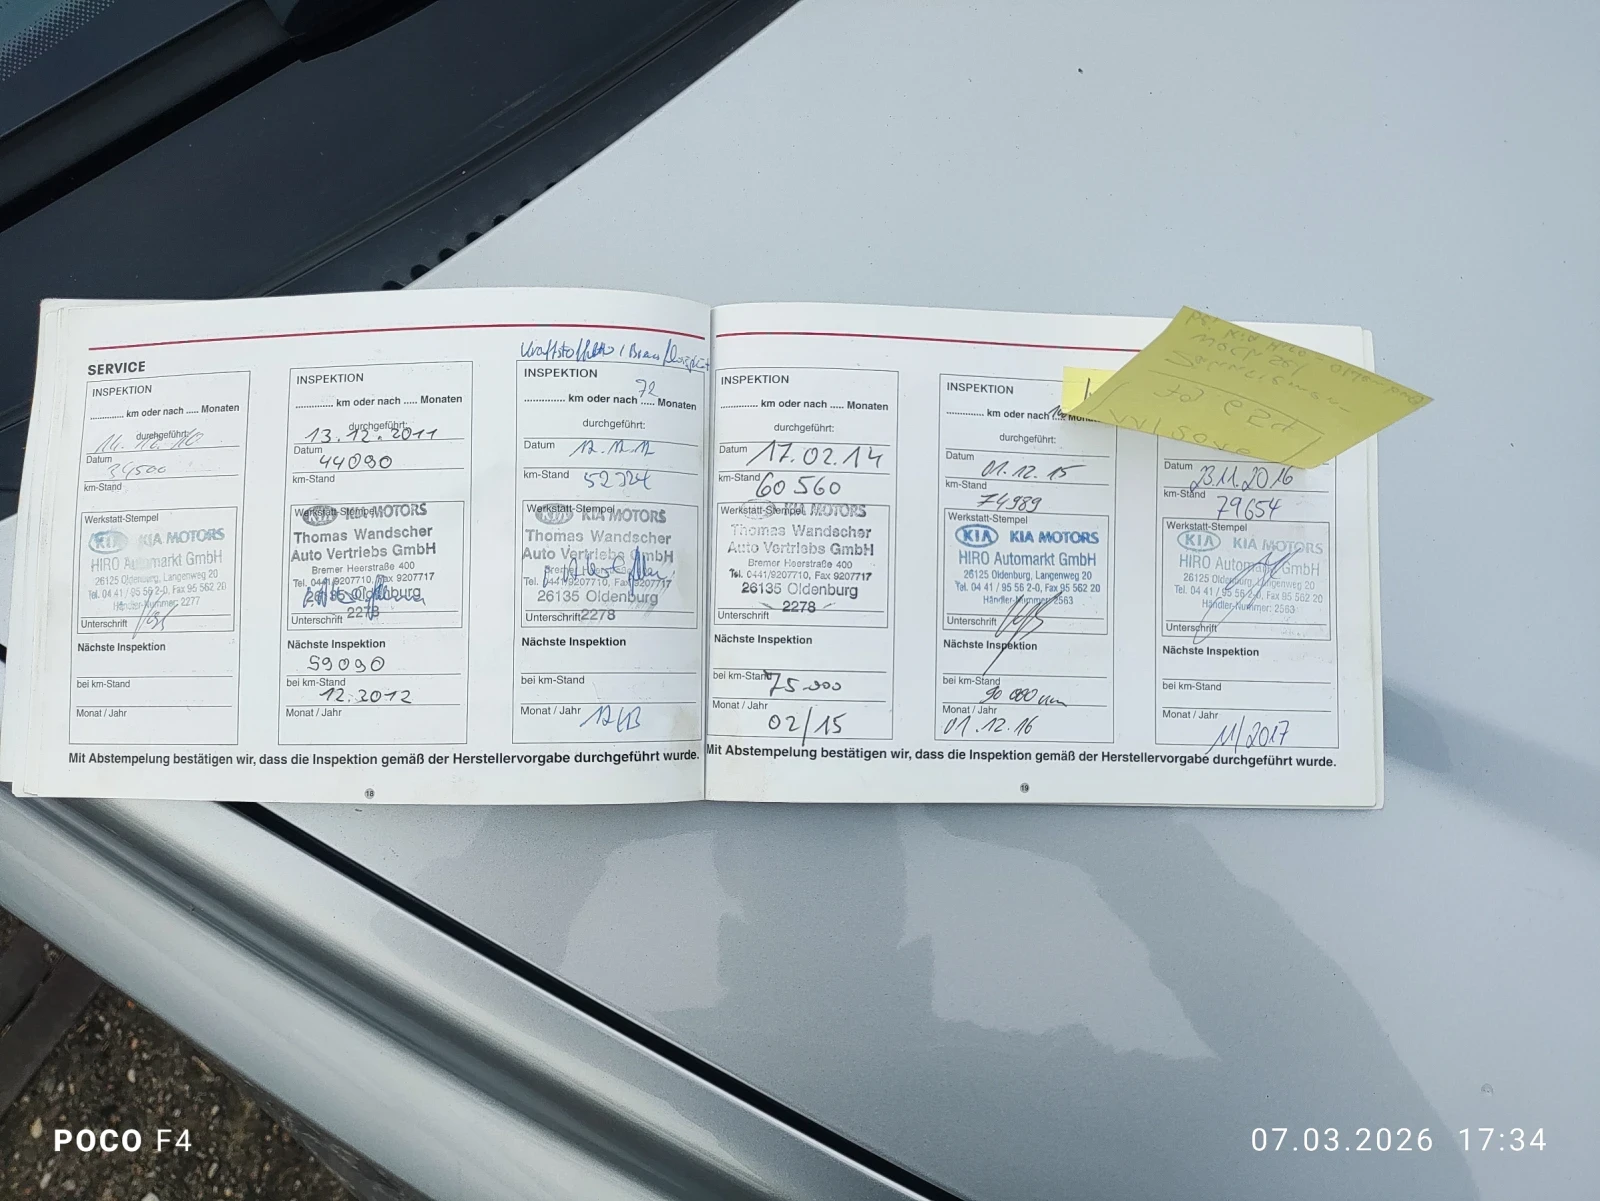 SERVICE
INSPEKTION
............ km oder nach ..... Monaten
durchgeführt:
Datum
34500
km-Stand
Werkstatt-Stempel
KIA MOTORS
HIRO Automarkt GmbH
26125 Oldenburg, Langenweg 20
Tel. 04 41 / 95 56 2-0, Fax 95 562 20
Händler-Nummer: 2277
Unterschrift
Nächste Inspektion
bei km-Stand
Monat / Jahr
INSPEKTION
............ km oder nach ..... Monaten
durchgeführt:
13.12.2011
Datum
44090
km-Stand
Werkstatt-Stempel
KIA MOTORS
Thomas Wandscher
Auto Vertriebs GmbH
Bremer Heerstraße 400
Tel. 0441/9207710, Fax 9207717
26135 Oldenburg
Unterschrift 2278
Nächste Inspektion
59090
bei km-Stand
12.2012
Monat / Jahr
INSPEKTION
72
............ km oder nach ..... Monaten
durchgeführt:
Datum 12.12.12
km-Stand 52324
Werkstatt-Stempel
KIA MOTORS
Thomas Wandscher
Auto Vertriebs GmbH
Tel. 0441/9207710, Fax 9207717
26135 Oldenburg
Unterschrift 2278
Nächste Inspektion
bei km-Stand
Monat / Jahr 12/13
Mit Abstempelung bestätigen wir, dass die Inspektion gemäß der Herstellervorgabe durchgeführt wurde.
18
INSPEKTION
............ km oder nach ..... Monaten
durchgeführt:
Datum 17.02.14
km-Stand 60 560
Werkstatt-Stempel
KIA MOTORS
Thomas Wandscher
Auto Vertriebs GmbH
Bremer Heerstraße 400
Tel. 0441/9207710, Fax 9207717
26135 Oldenburg
2278
Unterschrift
Nächste Inspektion
bei km-Stand 75000
Monat / Jahr
02/15
INSPEKTION
............ km oder nach
durchgeführt:
Datum 01.12.15
km-Stand
74989
Werkstatt-Stempel
KIA KIA MOTORS
HIRO Automarkt GmbH
26125 Oldenburg, Langenweg 20
Tel. 04 41 / 95 56 2-0, Fax 95 562 20
Händler-Nummer 2563
Unterschrift
Nächste Inspektion
bei km-Stand
90 000 km
Monat / Jahr
01.12.16
Datum 23.11.2016
km-Stand 79654
Werkstatt-Stempel
KIA KIA MOTORS
HIRO Automarkt GmbH
26125 Oldenburg, Langenweg 20
Tel. 04 41 / 95 56 2-0, Fax 95 562 20
Händler-Nummer: 2563
Unterschrift
Nächste Inspektion
bei km-Stand
Monat / Jahr
11/2017
Mit Abstempelung bestätigen wir, dass die Inspektion gemäß der Herstellervorgabe durchgeführt wurde.
19
POCO F4
07.03.2026 17:34